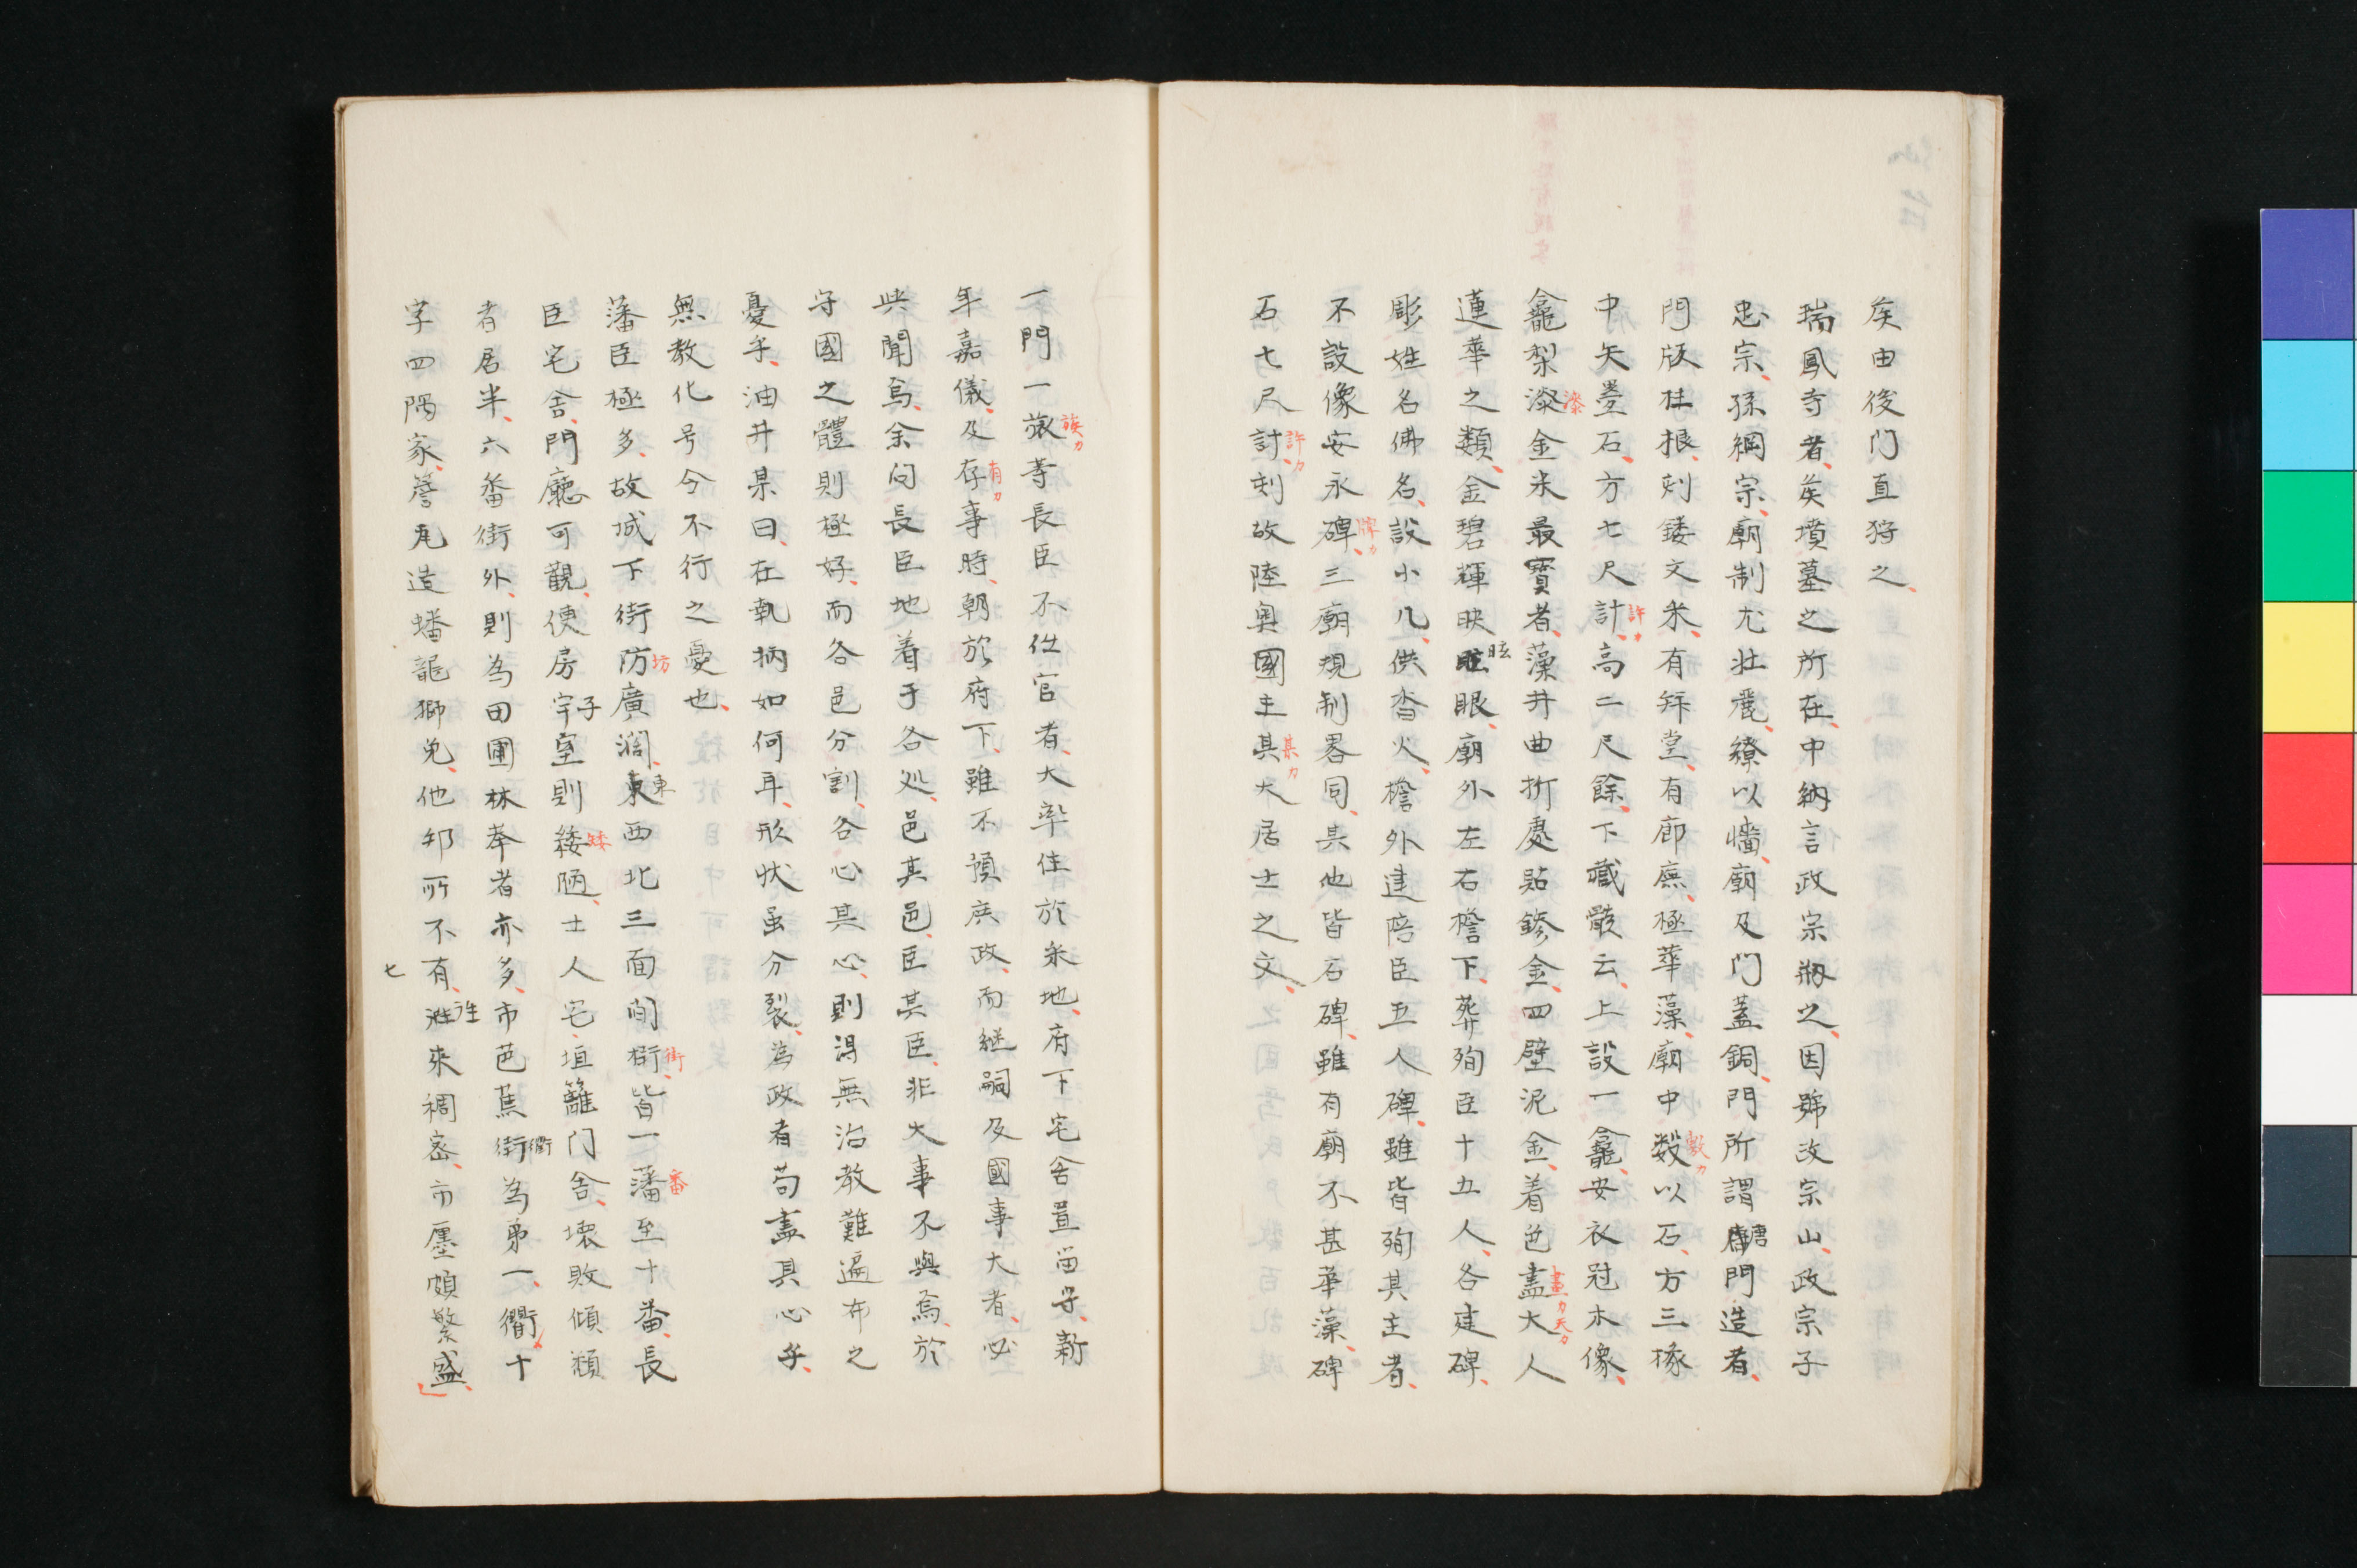 矦由後门直狩之、
瑞鳳寺者、矦墳墓之所在、中納言政宗刱之、因號改宗山、政宗子
忠宗、孫綱宗、廟制尤壮麗、繚以墻、廟及门蓋銅、門所謂唐門造者、
門版柱根、刻鏤文采、有拜堂、有廊廡、極華藻、廟中毀以石、方三椽
中矢疊石、方七尺計、高二尺餘、下藏骸云、上設一龕、安衣冠木像、
龕梨漆金米最寶者、藻井曲折處點鏒金、四壁泥金、着色盡大人
連華之類、金碧輝映眩眼、廟外左右檐下、葬殉臣十五人、各建碑、
彫姓名佛名、設小几、供杳火、檐外建陪臣五人碑、雖皆殉其主者、
不設像安永碑、三廟規制畧同、其他皆石碑、雖有廟不甚華藻、碑
石七尺討、刻故陸奥國主其大居士之文、
一門一旅等長臣不仕官者、大率住於采地、府下宅舍置畄守、新
年嘉儀、及存事時、朝於府下、雖不預庶政、而継嗣及國事大者、必
與聞焉、余问長臣地着于各処、邑其邑、臣其臣、非大事不與焉、於
守國之體則極好、而各邑分割、各心其心、則得無治教難遍布之
憂乎、油井某曰、在執柄如何耳、形状虽分裂、為政者苟盡具心乎、
無教化号令不行之憂也、
藩臣極多、故城下街防廣濶、東西北三面间衙皆一藩至十番、長
臣宅舍、門廳可觀、使房宇室則緌陋、士人宅、垣籬门舍、壊敗傾頽
者居半、六番街外、則為田圃林奉者亦多、市芭蕉街為第一、衢十
字四隅家、簷尾造蟠龍獅兒、他邦所不有、往來稠密、市廛頗繁盛、
族カ
有カ
漆
許カ
牌カ
許カ
眩
某カ
數カ
唐
畫カ
天カ
坊
子
東
矮
街
番
往
衢
七